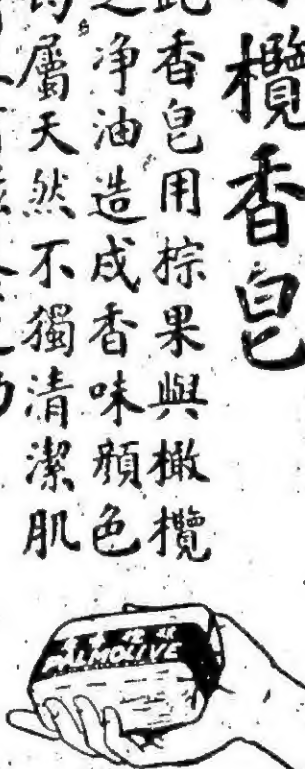 欖香皂
此香皂用棕果與橄欖
之净油造成香味顔色
均屬天然不獨清潔肌
PALMOLIVE